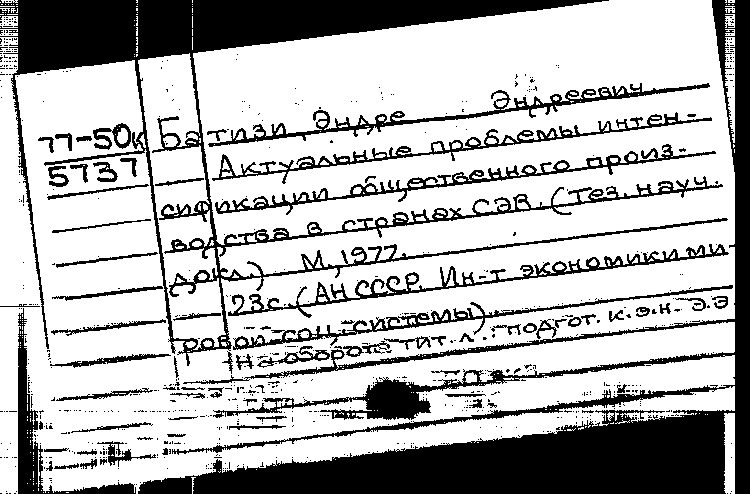 77-50к
5737
Батизи, Эндре Эндреевич.
Актуальные проблемы интен-
сификации общественного произ-
водства в странах СЭВ. (Тез. науч.
докл.) М., 1977.
23с. (АН СССР. Ин-т экономики ми-
ровой соц. системы).
На обороте тит. л.: подгот. к.э.н. Э.Э